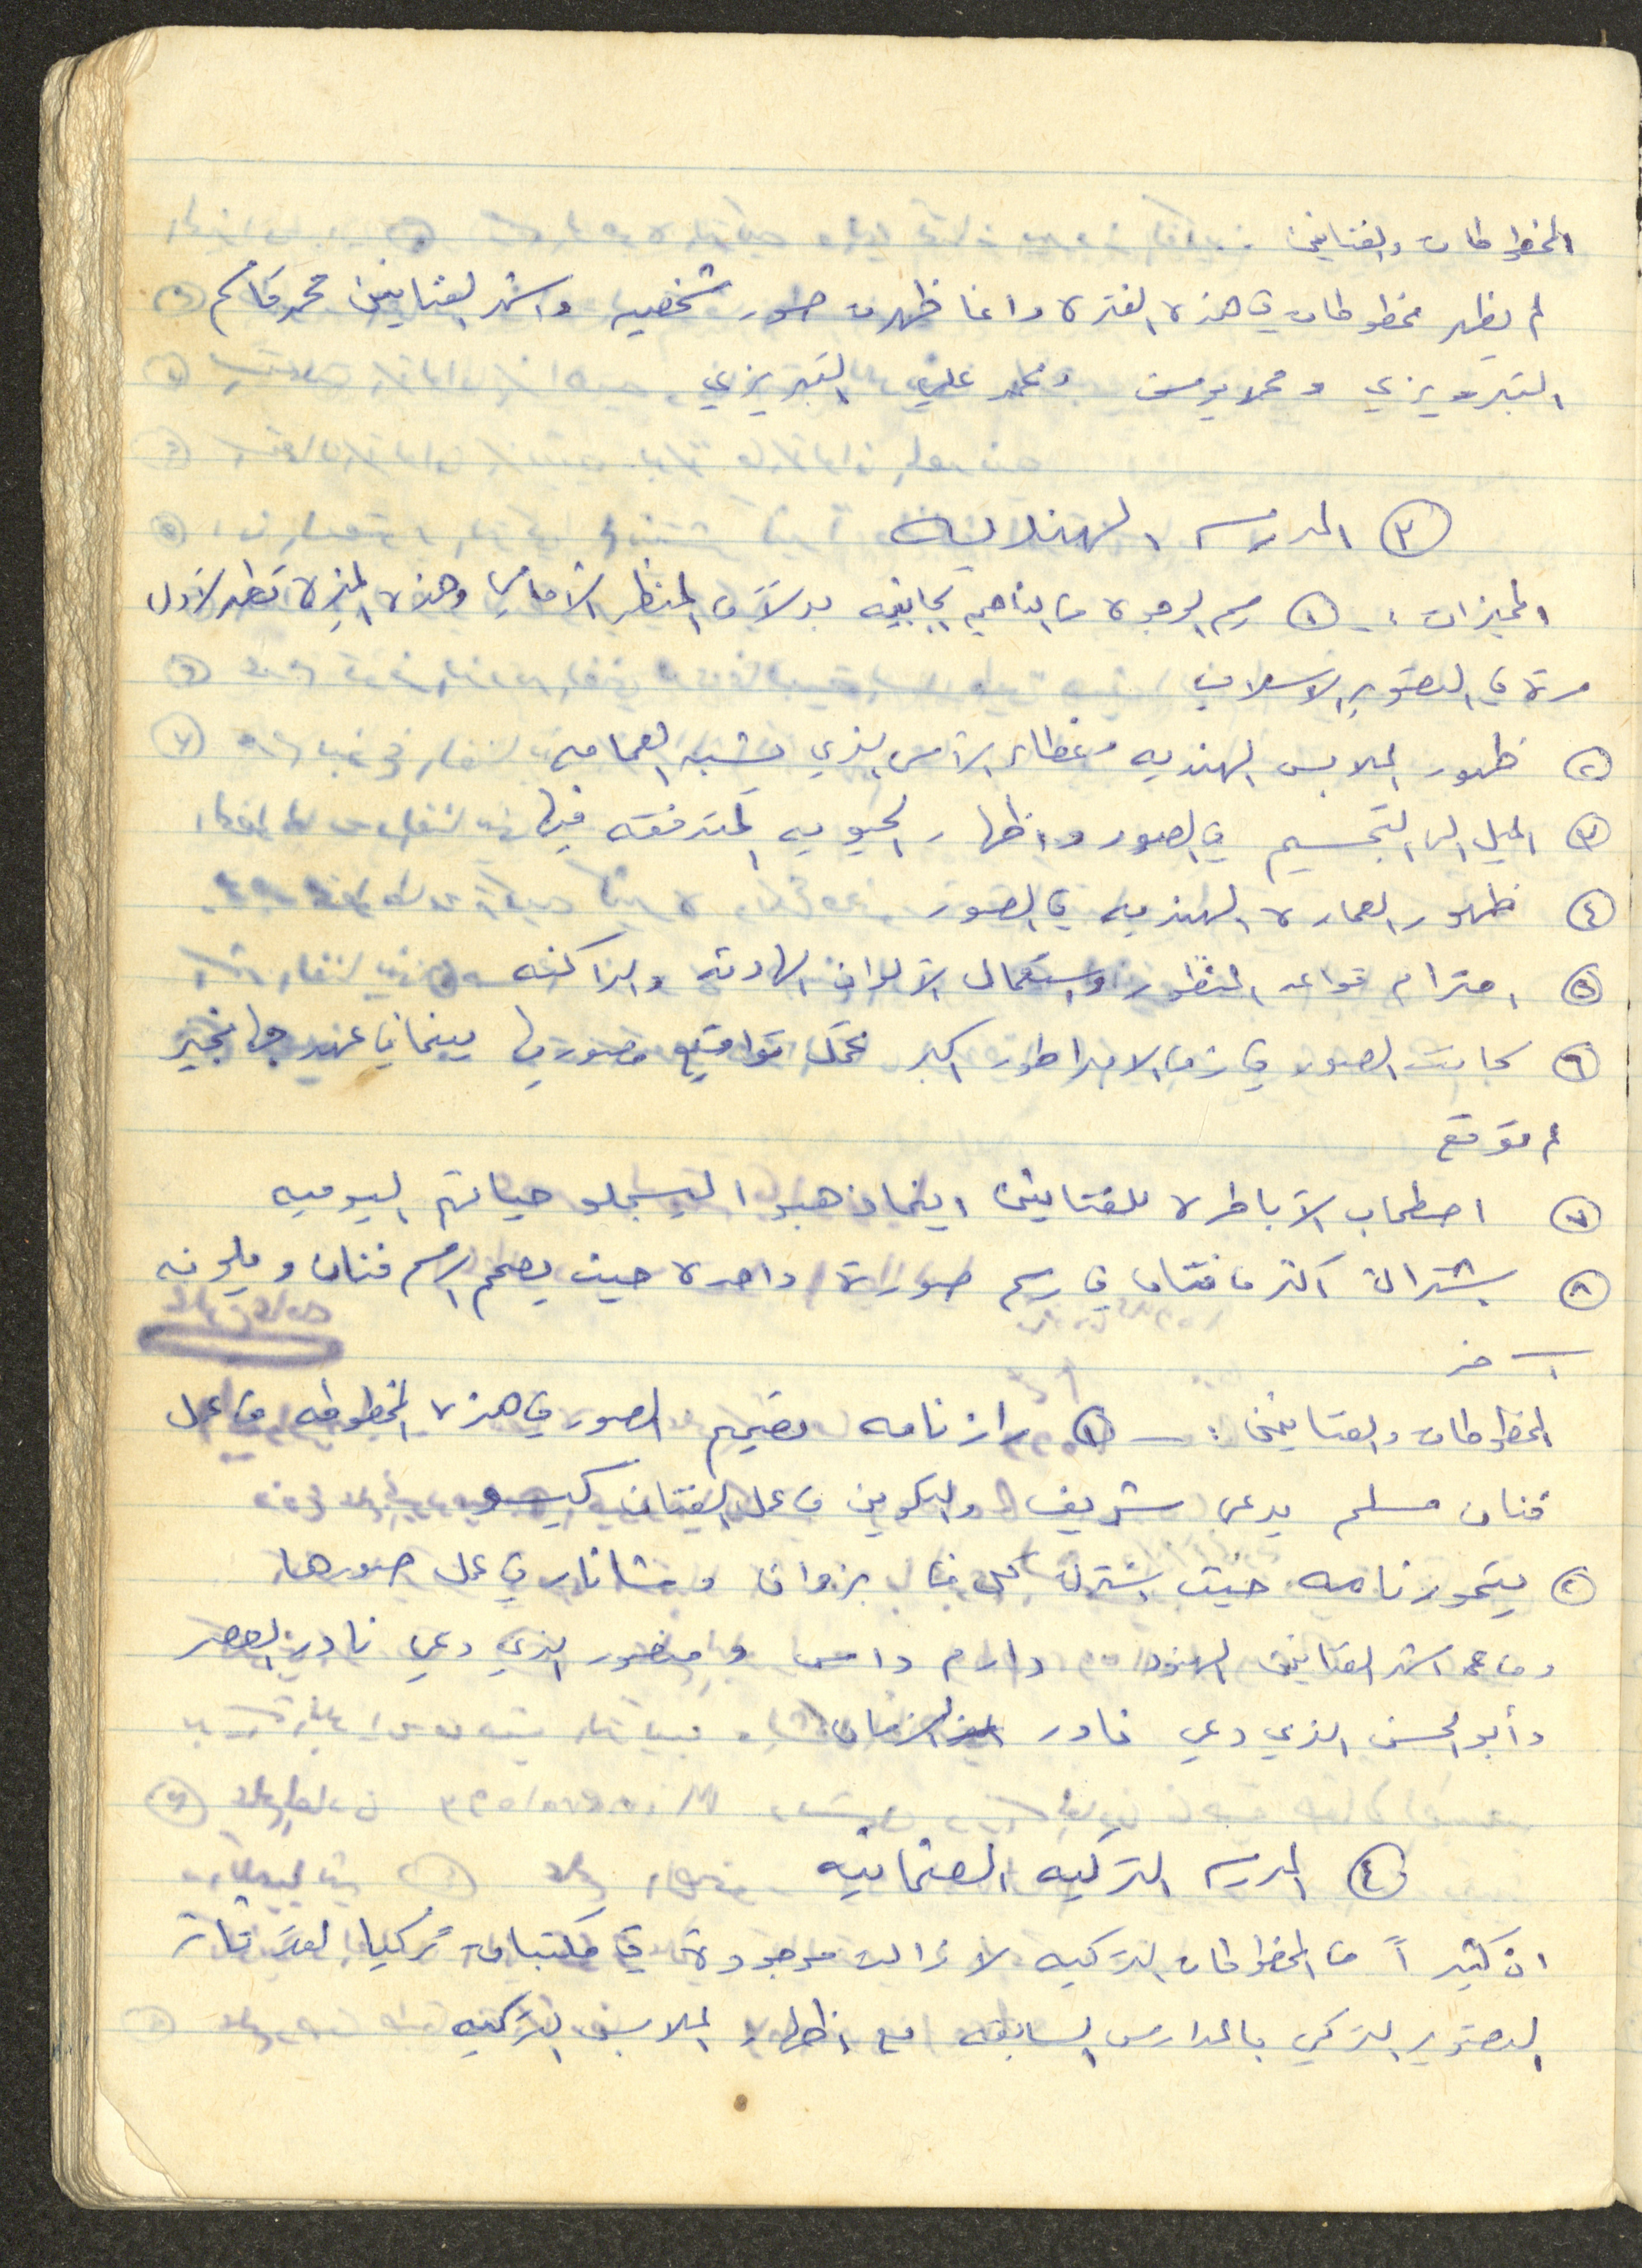 المخطوطات والفنانين :
لم يظهر مخطوطات في هذه الفترة وانما ظهرت صور شخصيه واشهر الفنانين محمد قاسم
التبريزي ومحمد يوسف ومحمد علي التبريزي
٣ المدرسه الهنديه
المميزات :- ١ رسم الوجوه من الناحيه الجانبيه بدلاً من المنظر الأمامي وهذه الميزة تظهر لأول
مرة في التصوير الاسلامي
٢ ظهور الملابس الهنديه وغطاء الرأس الذي يشبه العمامه
٣ الميل الى التجسيم في الصور واظهار الحيويه المتدفقه فيها
٤ ظهور العماره الهنديه في الصور
٥ احترام قواعد المنظور واستعمال الألوان الهادئه والداكنه
٦ كانت الصور في زمن الامبراطور اكبر تحمل تواقيع مصوريها بينما في عهد جهانجير
لم توقع
٧ اصطحاب الأباطره للفنانين اينما ذهبوا ليسجلو حياتهم اليوميه
٨ يشترك اكثر من فنان في رسم صورة واحده حيث يصمم الرسم فنان ويلونه
آخر
المخطوطات والفنانين :- ١ رازنامه تصميم الصور في هذه المخطوطه من عمل
فنان مسلم يدعى شريف والتكوين من عمل الفنان كيسو
٢ تيمورنامه حيث اشترك كل من بزوان ومشانار في عمل صورها
ومن اشهر الفنانين الهنود دارم داس ومنصور الذي دعي نادر العصر
وأبو الحسن الذي دعي نادر الزمان
٤ المدرسه التركيه العثمانيه
ان كثيراً من المخطوطات التركيه لا زالت موجودة في مكتبات تركيا لقد تأثر
التصوير التركي بالمدارس السابقه مع اظهار الملابس التركيه